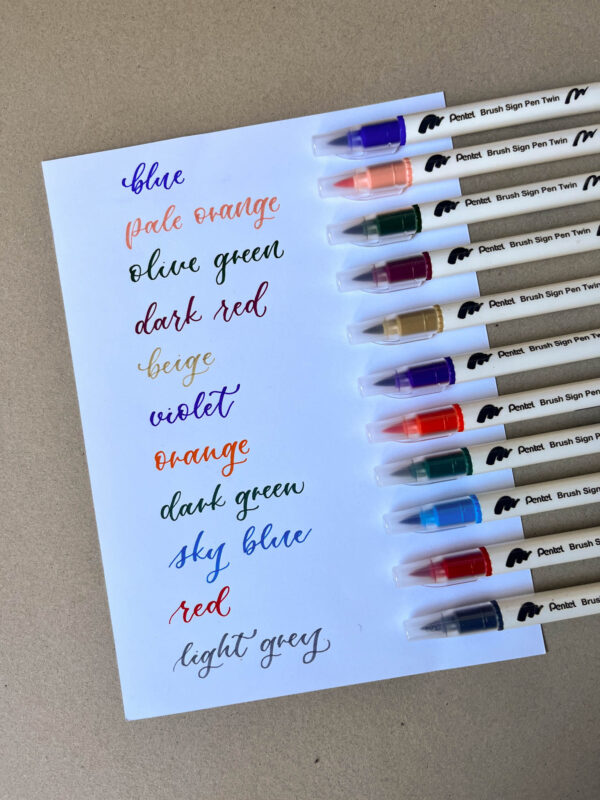 blue
pale orange
olive green
dark red
beige
violet
orange
dark green
sky blue
red
light grey
Pentel Brush Sign Pen Twin
Pentel Brush Sign Pen Twin
Pentel Brush Sign Pen Twin
Pentel Brush Sign Pen Twin
Pentel Brush Sign Pen Twin
Pentel Brush Sign Pen Twin
Pentel Brush Sign Pen
Pentel Brush Sign
Pentel Brush Sign
Pentel Brush Sign
Pentel Brush